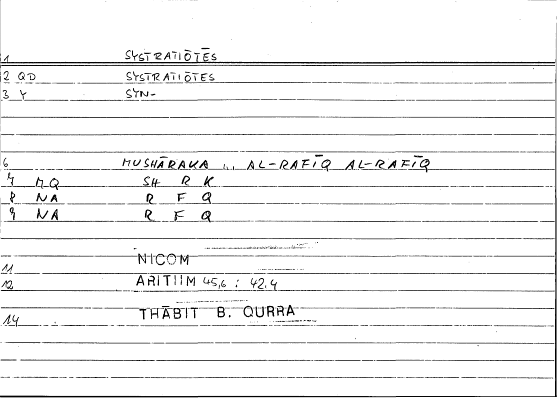 1 SYSTRATIŌTĒS
2 QD SYSTRATIŌTES
3 Y SYN-
6 MUSHĀRAKA AL-RAFĪQ AL-RAFĪQ
7 MQ SH R K
8 NA R F Q
9 NA R F Q
11 NICOM
12 ARITHM 45,6 : 42.4
14 THĀBIT B. QURRA